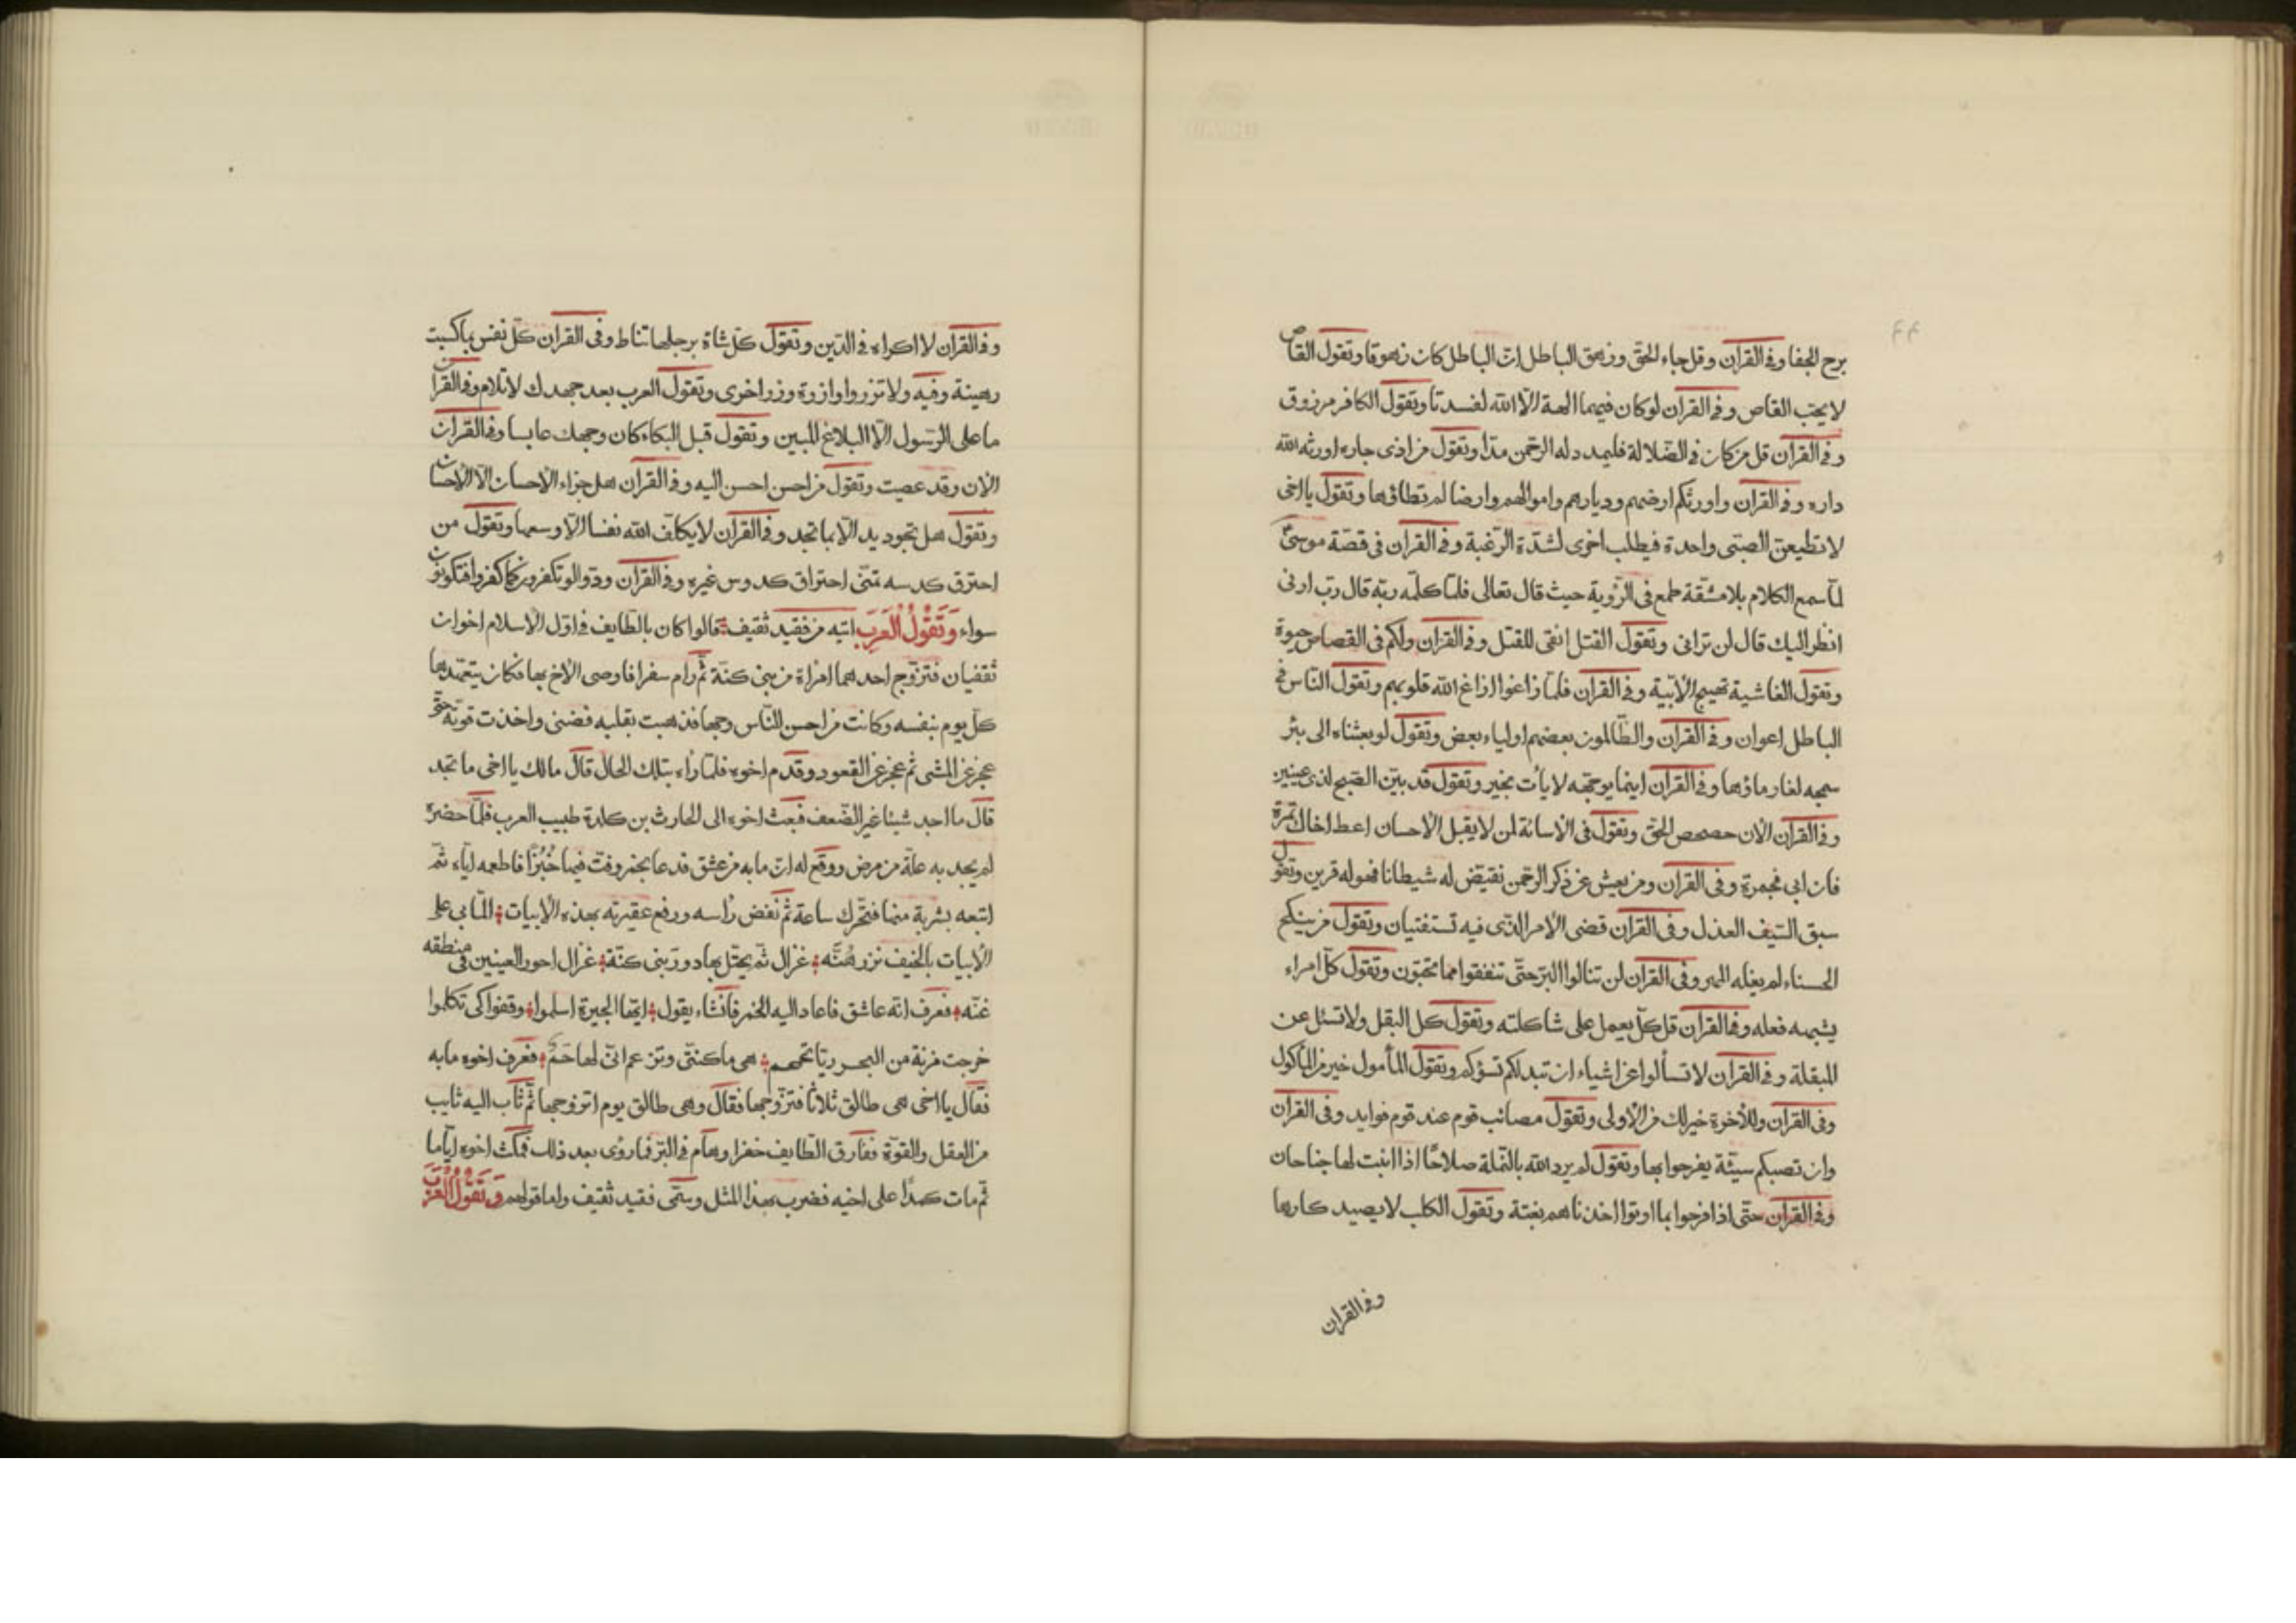 برح الخفا وفى القران وقل جاء الحق وزهق الباطل ان الباطل كان زهوقا وتقول القاص
لا يحب القاص وفى القران لو كان فيهما الهة الا الله لفسدتا وتقول الكافر مرزوق
وفى القران قل من كان فى الضلالة فليمدد له الرحمن مدا وتقول من اذى جاره اورثه الله
داره وفى القران واورثكم ارضهم وديارهم واموالهم وارضا لم تطاؤها وتقول يا اخى
لا تطيعن الصبى واحدة فيطلب اخرى لشدة الرغبة وفى القران فى قصة موسى
لما سمع الكلام بلا مشقة طمع فى الرؤية حيث قال تعالى فلما كلمه ربه قال رب ارنى
انظر اليك قال لن ترانى وتقول القتل انفى للقتل وفى القران ولكم فى القصاص حيوة
وتقول الغاشية تهيج الآبية وفى القران فلما زاغوا ازاغ الله قلوبهم وتقول الناس فى
الباطل اعوان وفى القران والظالمون بعضهم اولياء بعض وتقول لو بعثناه الى بئر
سجه لغار ماؤها وفى القران اينما يوجهه لا يأت بخير وتقول قد بين الصبح لذى عينين
وفى القران الان حصحص الحق وتقول فى الاسائة لمن لا يقبل الاحسان اعط اخاك تمرة
فان ابى فجمرة وفى القران ومن يعش عن ذكر الرحمن نقيض له شيطانا فهو له قرين وتقول
سبق السيف العذل وفى القران قضى الامر الذى فيه تستفتيان وتقول من ينكح
الحسناء لم يغله المهر وفى القران لن تنالوا البر حتى تنفقوا مما تحبون وتقول كل امراء
يشبهه فعله وفى القران قل كل يعمل على شاكلته وتقول كل البقل ولا تسئل عن
المبقلة وفى القران لا تسألوا عن اشياء ان تبد لكم تسؤكم وتقول المأمول خير من المأكول
وفى القران وللأخرة خير لك من الاولى وتقول مصائب قوم عند قوم فوايد وفى القران
وان تصبكم سيئة يفرحوا بها وتقول لم يرد الله بالنملة صلاحا اذا انبت لها جناحان
وفى القران حتى اذا فرحوا بما اوتوا اخذناهم بغتة وتقول الكلب لا يصيد كارها
وفى القران
وفى القران لا اكراه فى الدين وتقول كل شاة برجلها تناط وفى القران كل نفس بما كسبت
رهينة وفيه ولا تزروا وازرة وزر اخرى وتقول العرب بعد جهدك لا تلام وفى القران
ما على الرسول الا البلاغ المبين وتقول قبل البكاء كان وجهك عابسا وفى القران
الان وقد عصيت وتقول من احسن احسن اليه وفى القران هل جزاء الاحسان الا الاحسان
وتقول هل تجود يد الا بما تجد وفى القران لا يكلف الله نفسا الا وسعها وتقول من
احترق كدسه تمنى احتراق كدوس غيره وفى القران ودوا لو تكفرون كما كفروا فتكونون
سواء وَتَقُولُ الْعَرَبُ اتيه من فقيد ثقيف قالوا كان بالطايف فى اول الاسلام اخوان
ثقفيان فتزوج احدهما امراة من بنى كنة ثم رام سفرا فاوصى الاخ بها فكان يتعهدها
كل يوم بنفسه وكانت من احسن الناس وجها فذهبت بقلبه فضنى واخذت قوته حتى
عجز عن المشى ثم عجز عن القعود وقدم اخوه فلما راه بتلك الحال قال مالك يا اخى ما تجد
قال ما اجد شيئا غير الضعف فبعث اخوه الى الحارث بن كلدة طبيب العرب فلما حضره
لم يجد به علة من مرض ووقع له ان ما به من عشق فدعا بخمر وفت فيها خُبْزًا فاطعمه اياه ثم
اتبعه بشربة منها فتحرك ساعة ثم نغض رأسه ورفع عقيرته بهذه الابيات المابى على
الابيات بالخيف نزرهُنَّه غزال ثم يحتل بها دور بنى كنة غزال احور العينين فى منطقه
غنه فعرف انه عاشق فاعاد اليه الخمر فانشاء يقول ايها الجيرة اسلموا وقفوا كى تكلموا
خرجت مزنة من البحر ريا تحمحم هى ما كنتى وتزعم انى لها حَمُ فعرف اخوه ما به
فقال يا اخى هى طالق ثلاثا فتزوجها فقال وهى طالق يوم اتزوجها ثم ثاب اليه ثايب
من العقل والقوة ففارق الطايف خفرا وهام فى البر فما روى بعد ذلك فمكث اخوه اياما
ثم مات كمدًا على اخيه فضرب بهذا المثل وسمى فقيد ثقيف واما قولهم وَتَقُولُ الْعَرَبُ